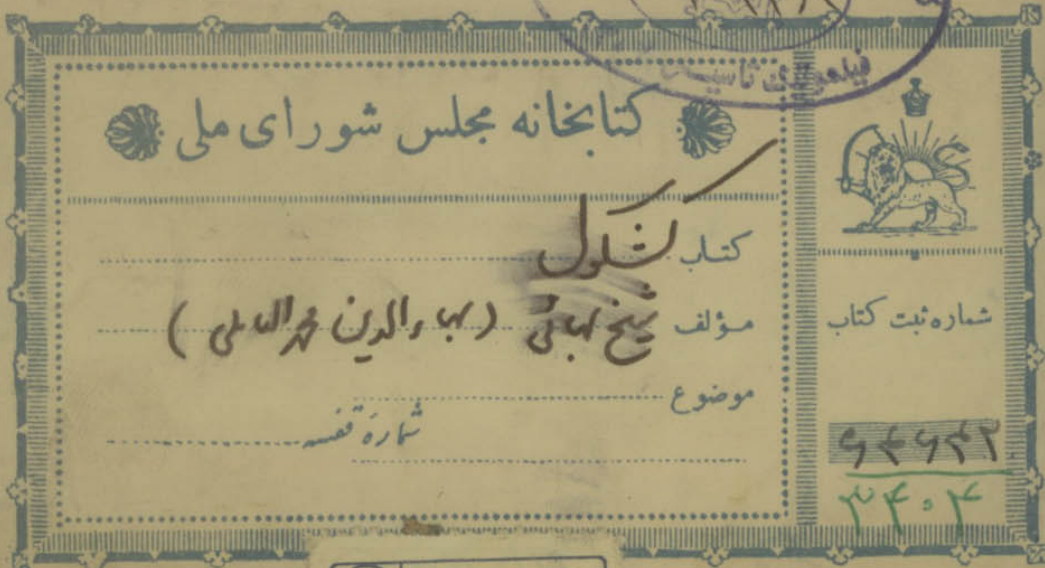 کتابخانه مجلس شورای ملی
کتاب کشکول
مؤلف شیخ بهائی (بهاءالدین محمد العاملی)
موضوع
شمارهٔ قفسه
شماره ثبت کتاب
۶۴۶۴۲
۳۴۰۴